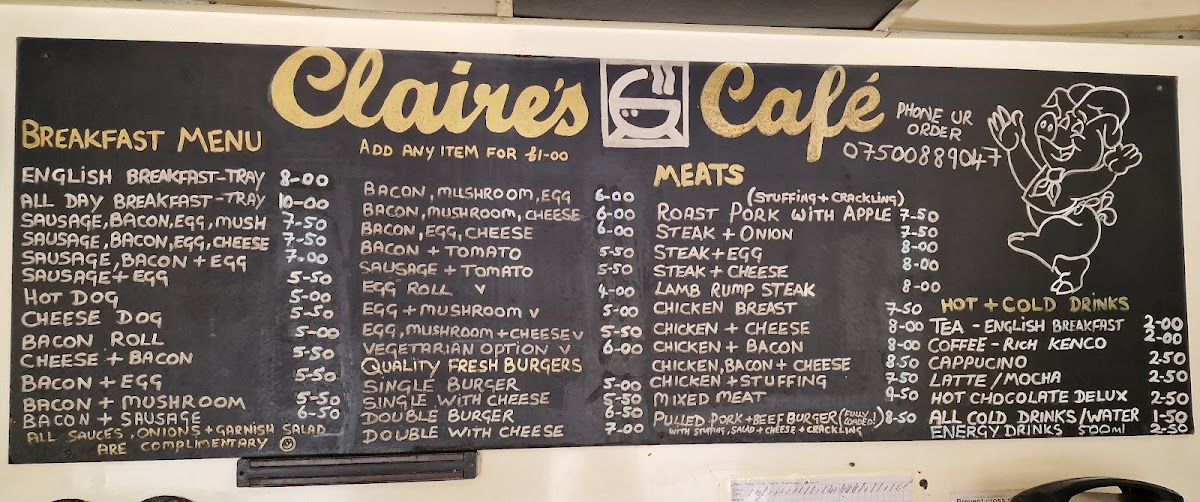 Claire's Café
PHONE UR
ORDER
07500889047
BREAKFAST MENU
ENGLISH BREAKFAST-TRAY 8-00
ALL DAY BREAKFAST-TRAY 10-00
SAUSAGE, BACON, EGG, MUSH 7-50
SAUSAGE, BACON, EGG, CHEESE 7-50
SAUSAGE, BACON + EGG 7-00
SAUSAGE + EGG 5-50
HOT DOG 5-00
CHEESE DOG 5-50
BACON ROLL 5-00
CHEESE + BACON 5-50
BACON + EGG 5-50
BACON + MUSHROOM 5-50
BACON + SAUSAGE 6-50
ALL SAUCES, ONIONS + GARNISH SALAD
ARE COMPLIMENTARY
ADD ANY ITEM FOR £1-00
BACON, MUSHROOM, EGG 6-00
BACON, MUSHROOM, CHEESE 6-00
BACON, EGG, CHEESE 6-00
BACON + TOMATO 5-50
SAUSAGE + TOMATO 5-50
EGG ROLL V 4-00
EGG + MUSHROOM V 5-00
EGG, MUSHROOM + CHEESE V 5-50
VEGETARIAN OPTION V 6-00
QUALITY FRESH BURGERS
SINGLE BURGER 5-00
SINGLE WITH CHEESE 5-50
DOUBLE BURGER 6-50
DOUBLE WITH CHEESE 7-00
MEATS
(STUFFING + CRACKLING)
ROAST PORK WITH APPLE 7-50
STEAK + ONION 7-50
STEAK + EGG 8-00
STEAK + CHEESE 8-00
LAMB RUMP STEAK 8-00
CHICKEN BREAST 7-50
CHICKEN + CHEESE 8-00
CHICKEN + BACON 8-00
CHICKEN, BACON + CHEESE 8-50
CHICKEN + STUFFING 7-50
MIXED MEAT 9-50
PULLED PORK + BEEF BURGER (FULLY LOADED!) 8-50
WITH STUFFING, SALAD + CHEESE + CRACKLING
HOT + COLD DRINKS
TEA - ENGLISH BREAKFAST 2-00
COFFEE - RICH KENCO 2-00
CAPPUCINO 2-50
LATTE / MOCHA 2-50
HOT CHOCOLATE DELUX 2-50
ALL COLD DRINKS/WATER 1-50
ENERGY DRINKS 500ml 2-50